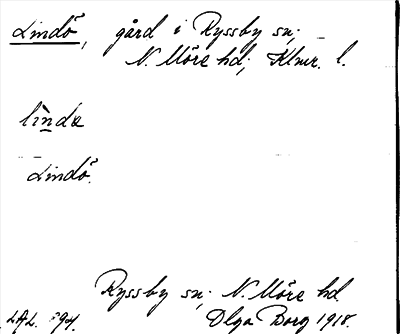 Lindö, gård i Ryssby sn;
N. Möre hd; Klmr. l.
lìndæ
Lindö.
Ryssby sn; N. Möre hd.
Olga Borg 1918.
LAL.